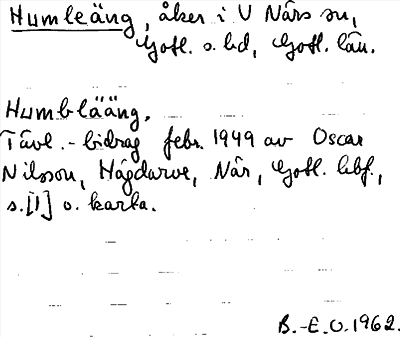 Humleäng, åker i V Närs sn,
Gotl. s. hd, Gotl. län.
Humblääng.
Tävl.-bidrag febr. 1949 av Oscar
Nilsson, Hägdarve, När, Gotl. hbf.,
s.[1] o. karta.
B.-E.O.1962.